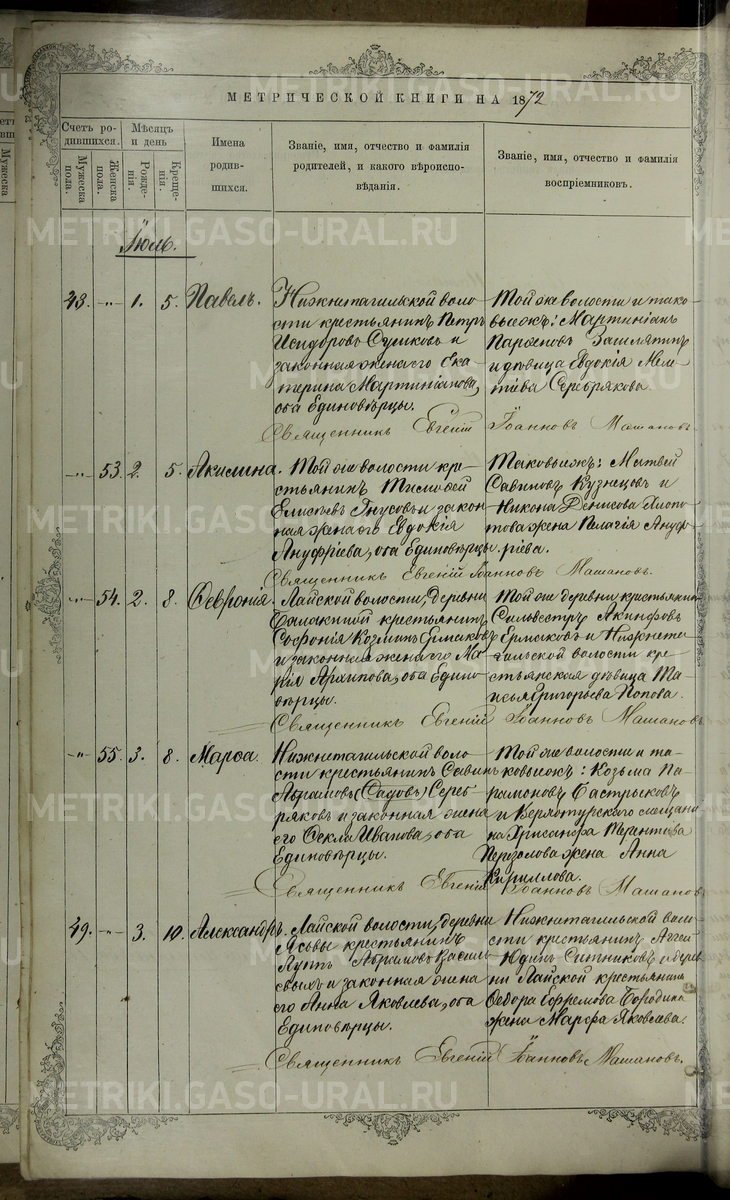 МЕТРИЧЕСКОЙ КНИГИ НА 1872
Счетъ родившихся.
Мужеска пола.
Женска пола.
Мѣсяцъ и день
Рожденія.
Крещенія.
Имена родившихся.
Званіе, имя, отчество и фамилія родителей, и какого вѣроисповѣданія.
Званіе, имя, отчество и фамилія воспріемниковъ.
Іюль.
43. -"- 1. 5. Павелъ.
Нижнетагильской воло-
сти крестьянинъ Петръ
Исидоровъ Сушковъ и
законная жена его Ека-
терина Мартиніанова,
оба Единовѣрцы.
Той же волости и тако-
выежъ: Мартиніанъ
Парѳеновъ
и дѣвица Евдокія
Серебрякова.
Священникъ Евгеній Іоанновъ Машановъ.
-"- 53. 2. 5. Акилина.
Той же волости кре-
стьянинъ Тимофей
Елисѣевъ Гнусовъ и закон-
ная жена его Евдокія
Ануфріева, оба Единовѣрцы.
Таковыежъ: Матвей
Савиновъ Кузнецовъ и
Никона Денисова
жена Пелагія Ануф-
ріева.
Священникъ Евгеній Іоанновъ Машановъ.
-"- 54. 2. 8. Ѳевронія.
Лайской волости, деревни
Балакиной крестьянинъ
Софонія Козминъ Ермаковъ
и законная жена его Ма-
рія Архипова, оба Едино-
вѣрцы.
Той же деревни, крестьянинъ
Сильвестръ Акинфовъ
Ермаковъ и Нижнета-
гильской волости кре-
стьянская дѣвица Та-
исья Григорьева Попова.
Священникъ Евгеній Іоанновъ Машановъ
-"- 55. 3. 8. Марѳа.
Нижнетагильской воло-
сти крестьянинъ Савинъ
Абрамовъ (Садовъ) Сереб-
ряковъ и законная жена
его Ѳекла Иванова, оба
Единовѣрцы.
Той же волости и та-
ковыежъ: Козьма Па-
рамоновъ Бастрыковъ
и Верхотурскаго мещани-
на Хрисанфа Терентьева
жена Анна
Кириллова.
Священникъ Евгеній Іоанновъ Машановъ
49. -"- 3. 10. Александръ.
Лайской волости, деревни
крестьянинъ
Луппъ Абрамовъ Василь-
евыхъ и законная жена
его Анна Яковлева, оба
Единовѣрцы.
Нижнетагильской воло-
сти крестьянинъ Аггей
Юдинъ Ситниковъ и дерев-
ни Лайской крестьянина
Ѳедора Ефремова Бородина
жена Марѳа Яковлева.
Священникъ Евгеній Іоанновъ Машановъ.
METRIKI.GASO-URAL.RU